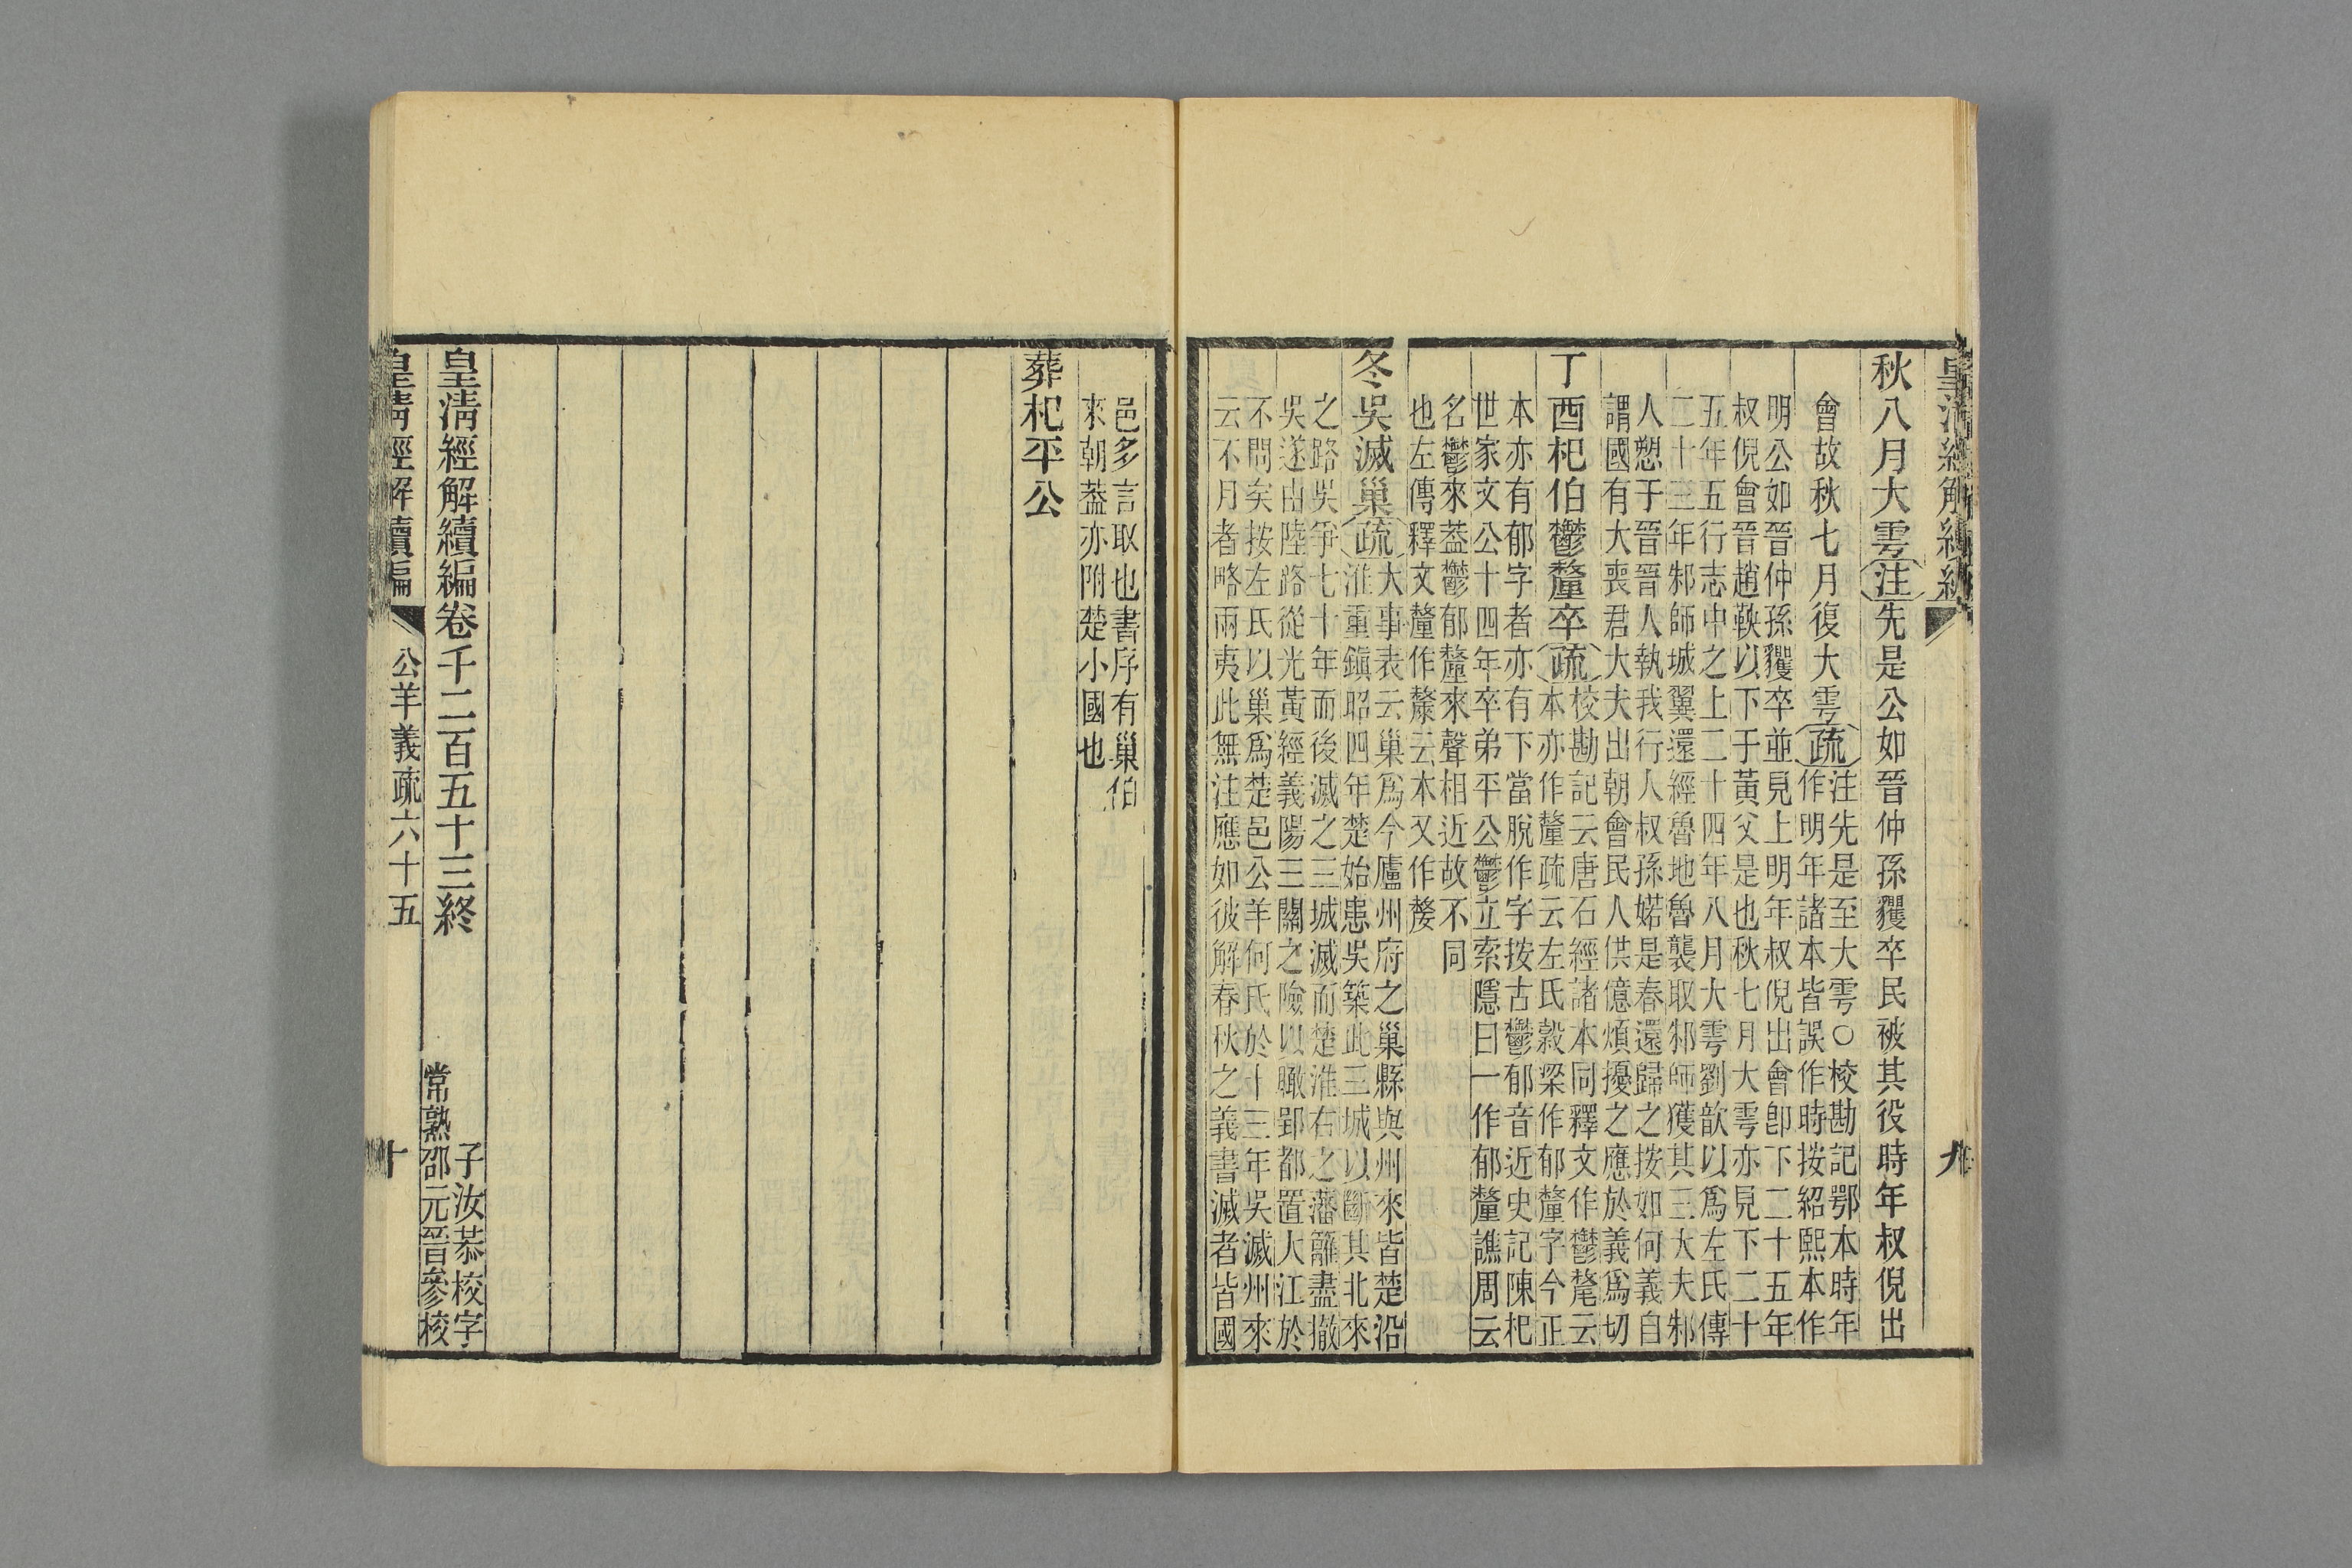 皇清經解續編
九
秋八月大雩注先是公如晉仲孫貜卒民被其役時年叔倪出
會故秋七月復大雩疏注先是至大雩○校勘記鄂本時年
作明年諸本皆誤作時按紹熙本作
明公如晉仲孫貜卒並見上明年叔倪出會卽下二十五年
叔倪會晉趙鞅以下于黃父是也秋七月大雩亦見下二十
五年五行志中之上二十四年八月大雩劉歆以爲左氏傳
二十三年邾師城翼還經魯地魯襲取邾師獲其三大夫邾
人愬于晉晉人執我行人叔孫婼是春還歸之按如何義自
謂國有大喪君大夫出朝會民人供億煩擾之應於義爲切
丁酉杞伯鬱釐卒疏校勘記云唐石經諸本同釋文作鬱氂云
本亦作釐疏云左氏穀梁作郁釐字今正
本亦有郁字者亦有下當脫作字按古鬱郁音近史記陳杞
世家文公十四年卒弟平公鬱立索隱曰一作郁釐譙周云
名鬱來葢鬱郁釐來聲相近故不同
也左傳釋文釐作斄云本又作嫠
冬吳滅巢疏大事表云巢爲今廬州府之巢縣與州來皆楚沿
淮重鎭昭四年楚始患吳築此三城以斷其北來
之路吳爭七十年而後滅之三城滅而楚淮右之藩籬盡撤
吳遂由陸路從光黃經義陽三關之險以瞰郢都置大江於
不問矣按左氏以巢爲楚邑公羊何氏於十三年吳滅州來
云不月者略兩夷此無注應如彼解春秋之義書滅者皆國
邑多言取也書序有巢伯
來朝葢亦附楚小國也
葬杞平公
皇清經解續編卷千二百五十三終
子汝恭校字
常熟邵元晉參校
皇清經解續編
公羊義疏六十五
十